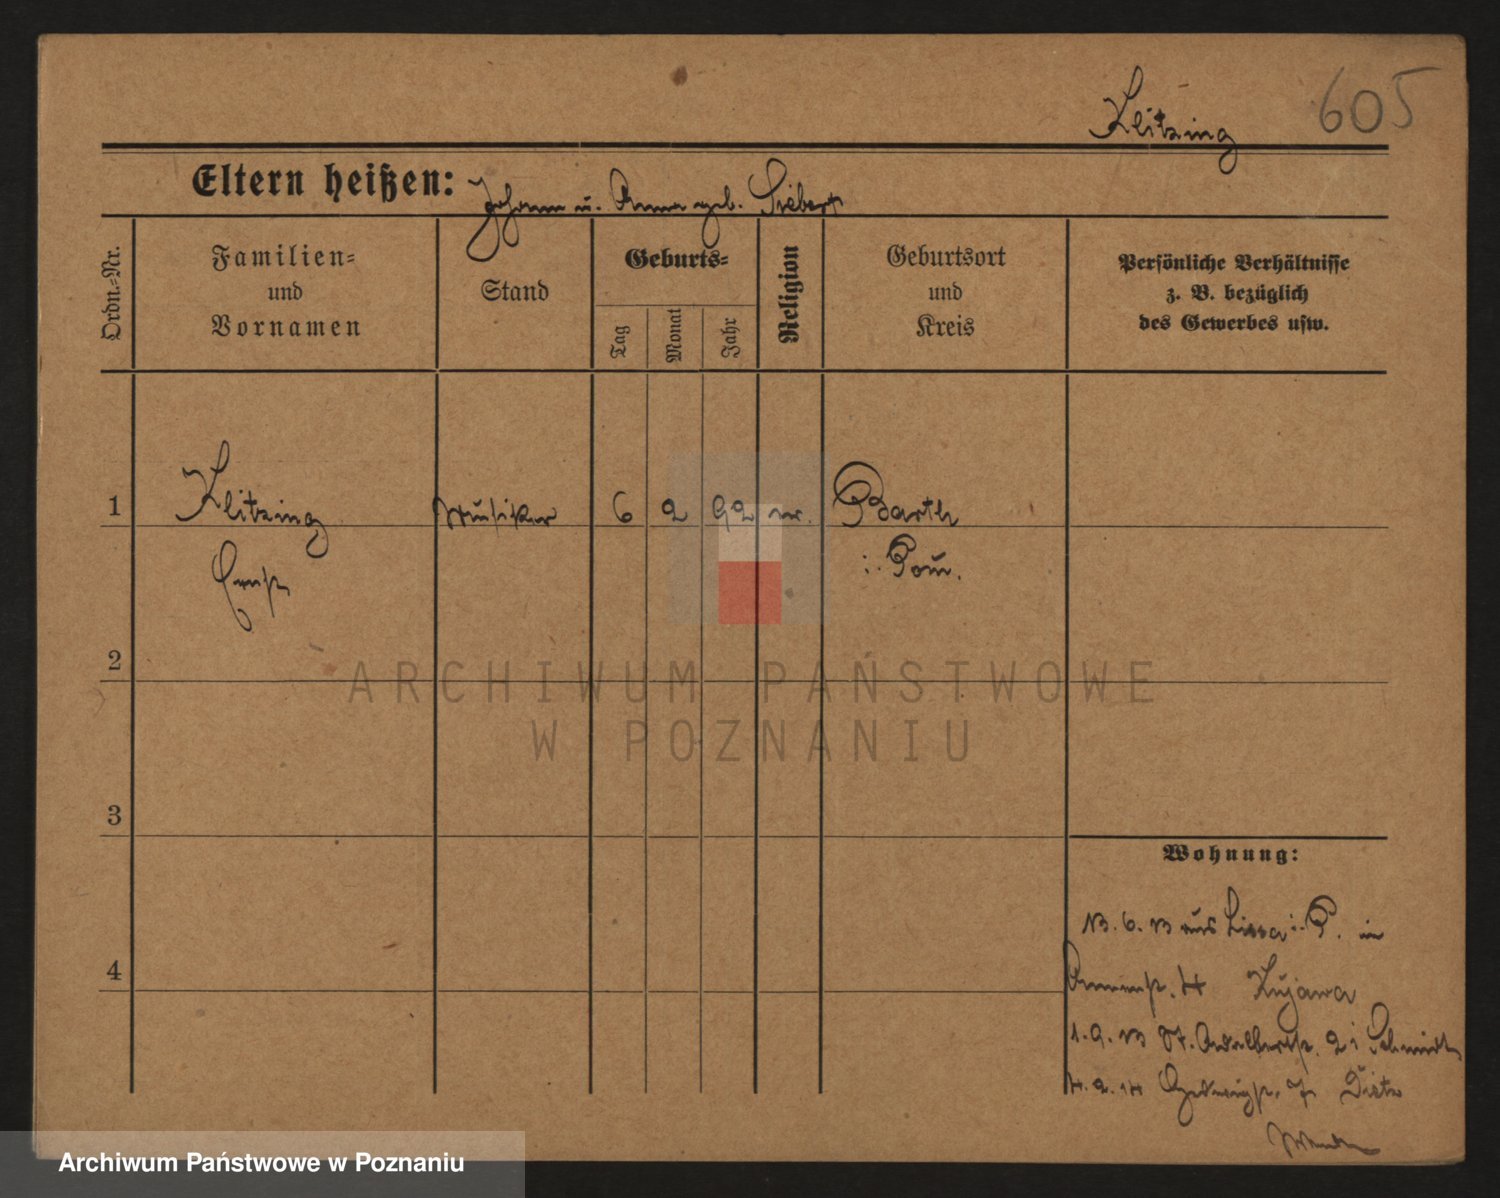 605
Klitzing
Eltern heißen: Johann u. Anna geb. Siebert
Ordn.-Nr.
Familien-
und
Vornamen
Stand
Geburts-
Tag
Monat
Jahr
Religion
Geburtsort
und
Kreis
Persönliche Verhältnisse
z. B. bezüglich
des Gewerbes usw.
1 Klitzing Musiker 6 2 92 Barth
Ernst i. Pom.
2
3
4
Wohnung:
13. 6. 13 aus Lissa i. P. in
4 Kujawa
1. 9. 13 St. Adalbertstr. 2 i Schmidt
4. 2. 14 Hedwigstr. 7 Dietz
ARCHIWUM PAŃSTWOWE
W POZNANIU
Archiwum Państwowe w Poznaniu